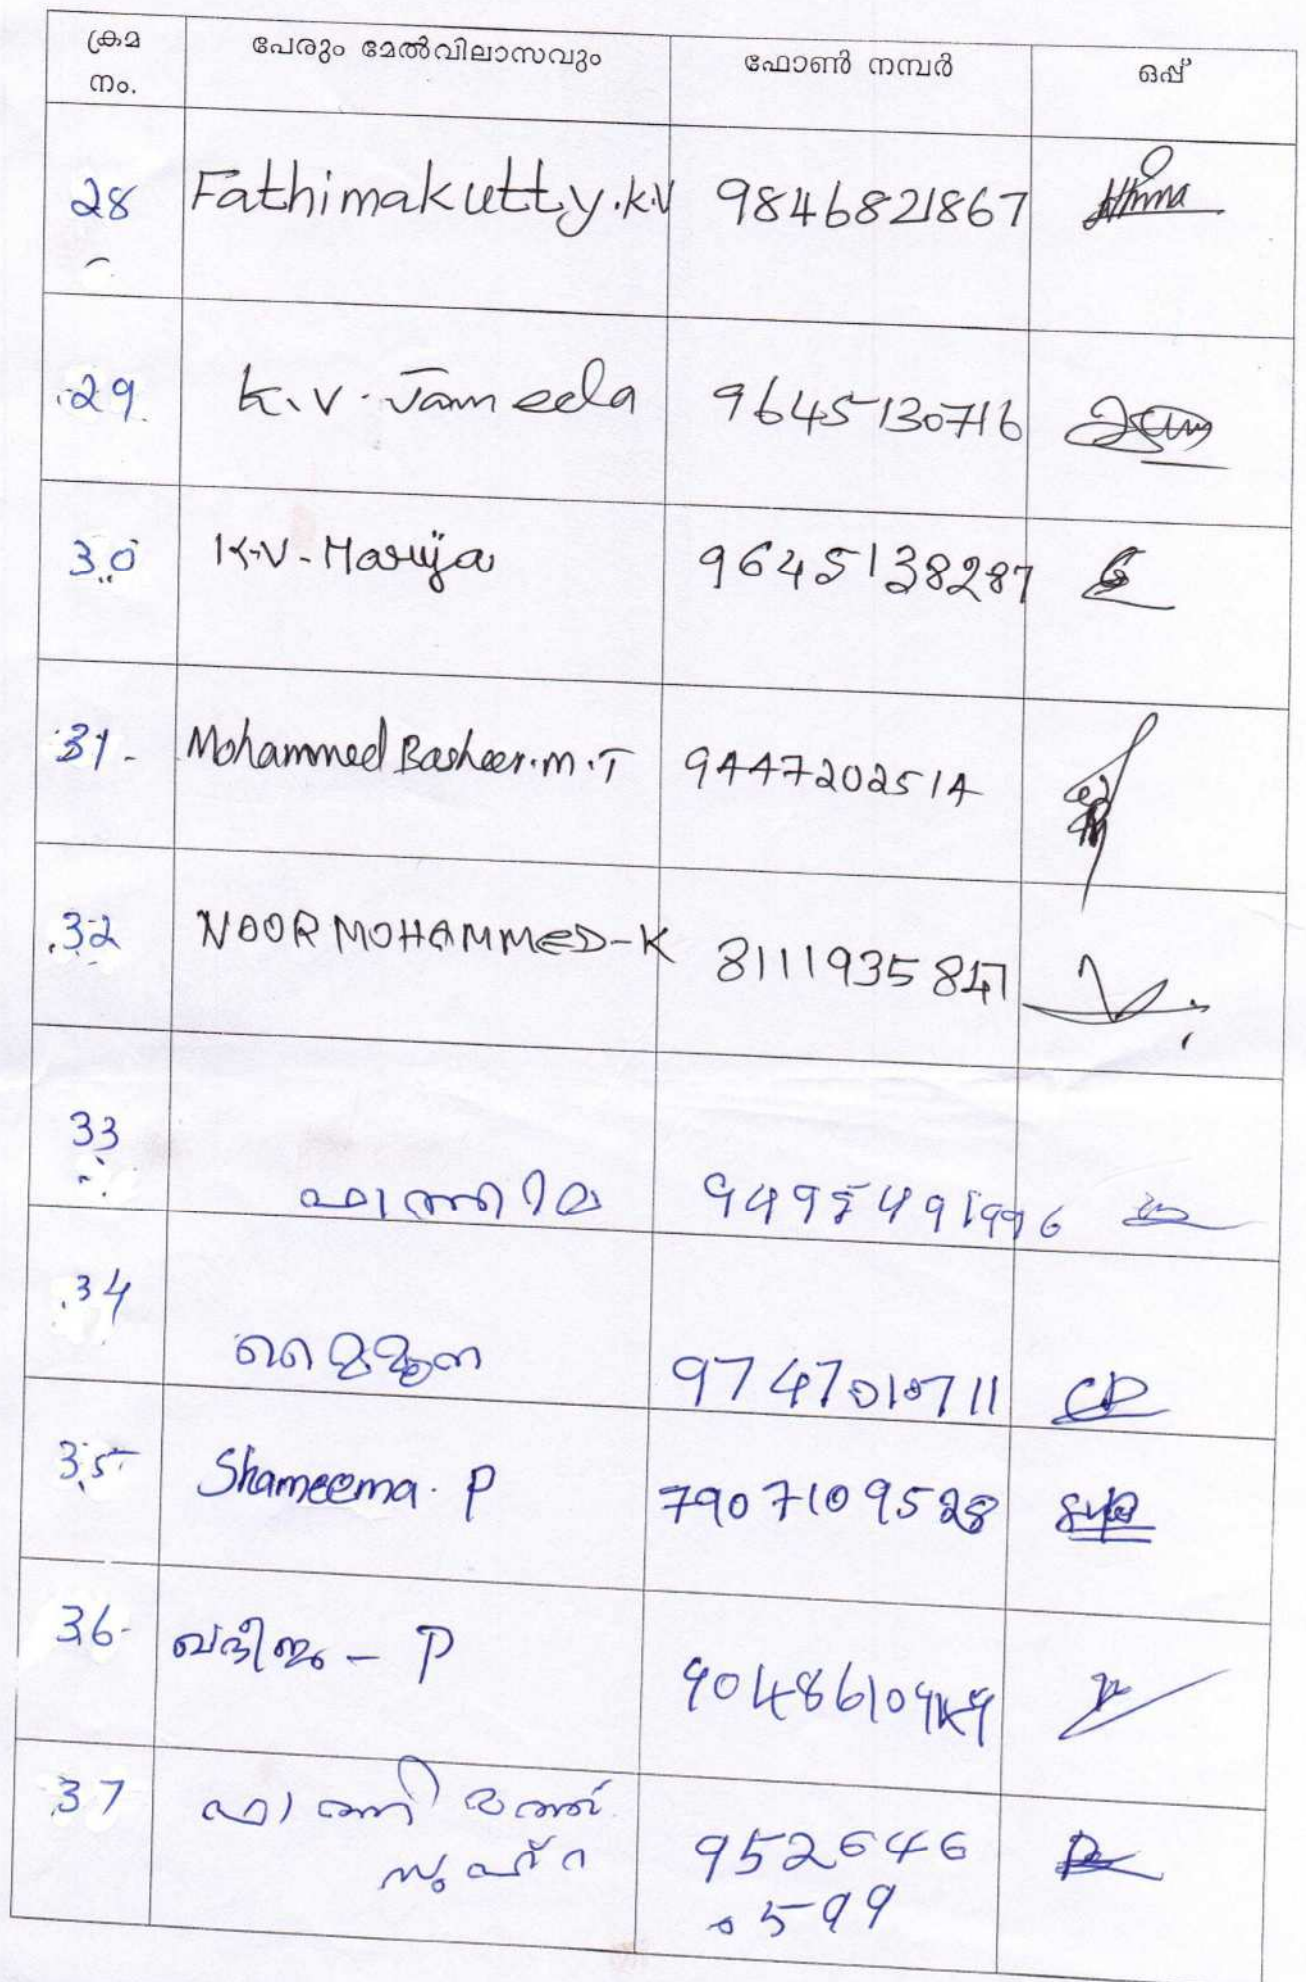 ക്രമ നം. പേരും മേൽവിലാസവും ഫോൺ നമ്പർ ഒപ്പ്
28 Fathimakutty.k.V 9846821867
29 K.V. Jameela 9645130716
30 K.V-Marija 9645138287
31- Mohammed Basheer.m.T 9447202514
32 NOOR MOHAMMED-K 8111935847
33 ഫാത്തിമ
34 മൈമൂന 9747010711
35 Shameema. P 7907109528
36- ഖദീജ - P
37 ഫാത്തിമത്ത് 952646
സുഹ്റ 0599